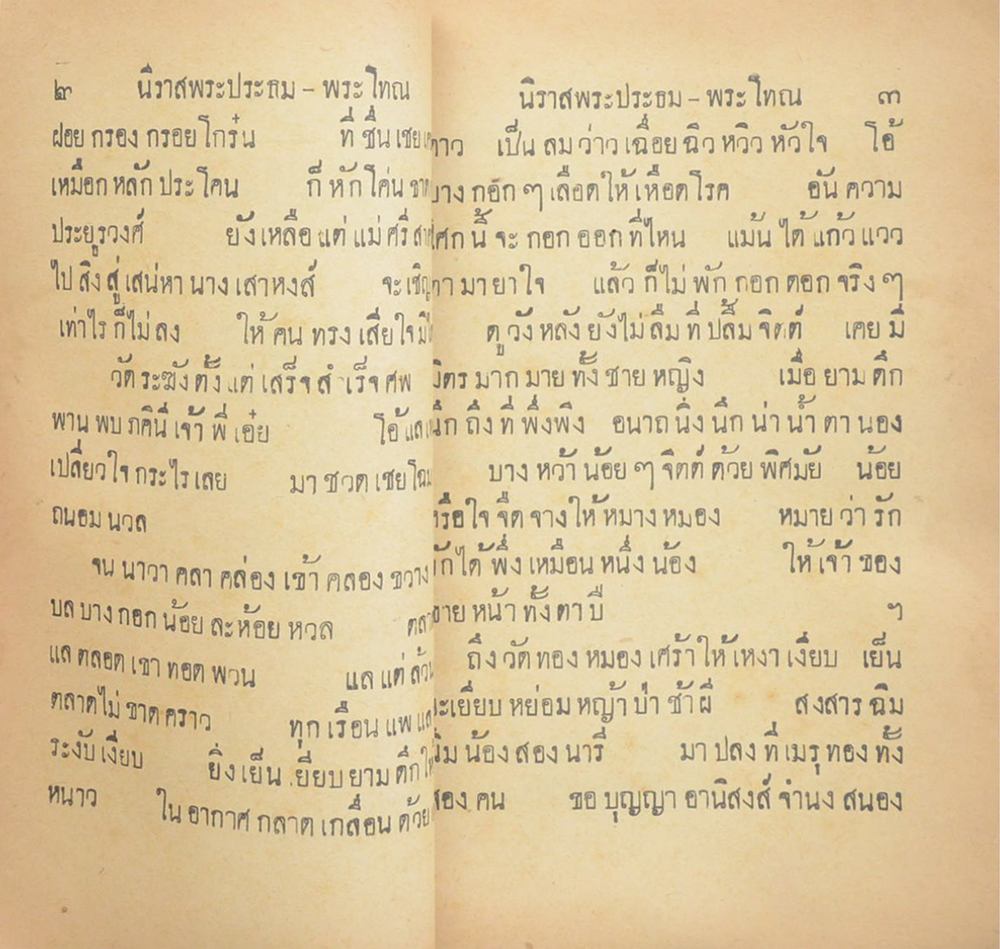 ๒ นิราสพระประธม – พระโทณ
ฝอย กรอง กรอย โกร๋น ที่ ชื่น เชย
เหมือก หลัก ประ โคน ก็ หัก โค่น
ประยูรวงศ์ ยัง เหลือ แต่ แม่ ศรี
ไป สิง สู่ เสน่หา นาง เสาหงส์ จะ เชิญ
เท่าไร ก็ไม่ ลง ให้ คน ทรง เสีย ใจ
วัด ระฆัง ตั้ง แต่ เสร็จ สำ เร็จ ศพ
พาน พบ ภคินี เจ้า พี่ เอ๋ย โอ้ แล
เปลี่ยว ใจ กระ ไร เลย มา ชวด เชย โฉม
ถนอม นวล
จน นาวา คลา คล่อง เข้า คลอง ขวาง
บล บาง กอก น้อย ละห้อย หวล
แล ตลอด เขา ทอด พวน แล แต่ ล้วน
ตลาด ไม่ ขาด คราว ทุก เรือน แพ แล
ระงับ เงียบ ยิ่ง เย็น เยียบ ยาม ดึก
หนาว ใน อากาศ กลาด เกลื่อน ด้วย
นิราสพระประธม – พระโทณ ๓
เป็น ลม ว่าว เฉื่อย ฉิว หวิว หัว ใจ โอ้
บาง กอก ๆ เลือด ให้ เหือด โรค อัน ความ
โศก นี้ จะ กอก ออก ที่ไหน แม้น ได้ แก้ว แวว
ตา มา ยา ใจ แล้ว ก็ไม่ พัก กอก ดอก จริง ๆ
ดู วัง หลัง ยัง ไม่ ลืม ที่ ปลื้ม จิตต์ เคย มี
มิตร มาก มาย ทั้ง ชาย หญิง เมื่อ ยาม ดึก
นึก ถึง ที่ พึ่งพิง อนาถ นิ่ง นึก น่า น้ำ ตา นอง
บาง หว้า น้อย ๆ จิตต์ ด้วย พิศมัย น้อย
หรือ ใจ จืด จาง ให้ หมาง หมอง หมาย ว่า รัก
จักได้ พึ่ง เหมือน หนึ่ง น้อง ให้ เจ้า ของ
ขาย หน้า ทั้ง ตา ปี ฯ
ถึง วัด ทอง หมอง เศร้า ให้ เหงา เงียบ เย็น
ยะเยียบ หย่อม หญ้า ป่า ช้า ผี สงสาร ฉิม
นิ่ม น้อง สอง นารี มา ปลง ที่ เมรุ ทอง ทั้ง
สอง คน ขอ บุญญา อานิสงส์ จำนง สนอง